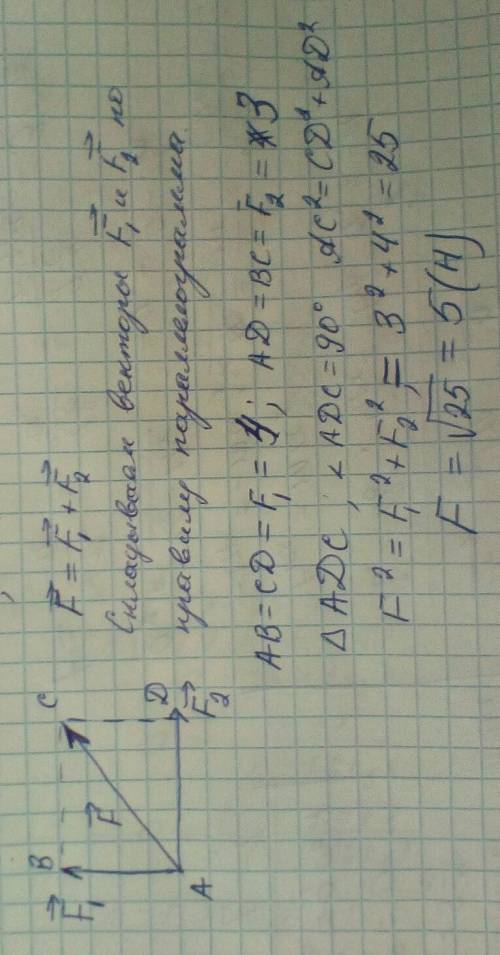 F⃗₁ B C
F⃗
A D F⃗₂
F⃗ = F⃗₁ + F⃗₂
Складываем векторы F⃗₁ и F⃗₂ по
правилу параллелограмма
AB = CD = F₁ = 4; AD = BC = F₂ = 3
△ADC, ∠ADC = 90° AC² = CD² + AD²
F² = F₁² + F₂², = 3² + 4² = 25
F = √25 = 5 (Н)